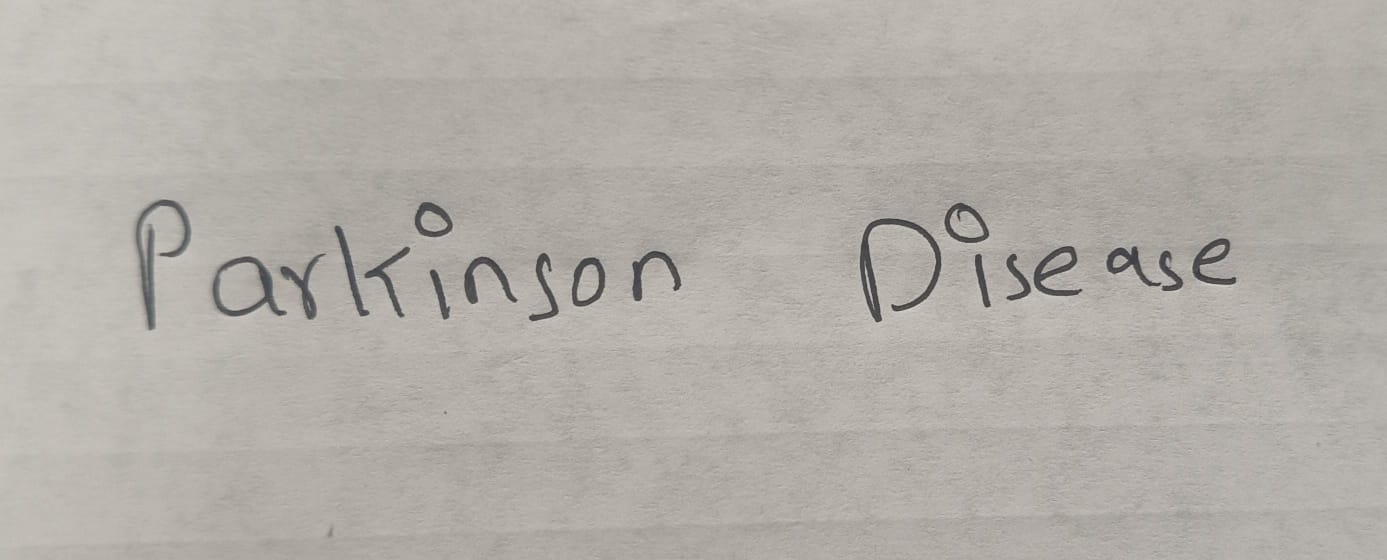 Parkinson Disease